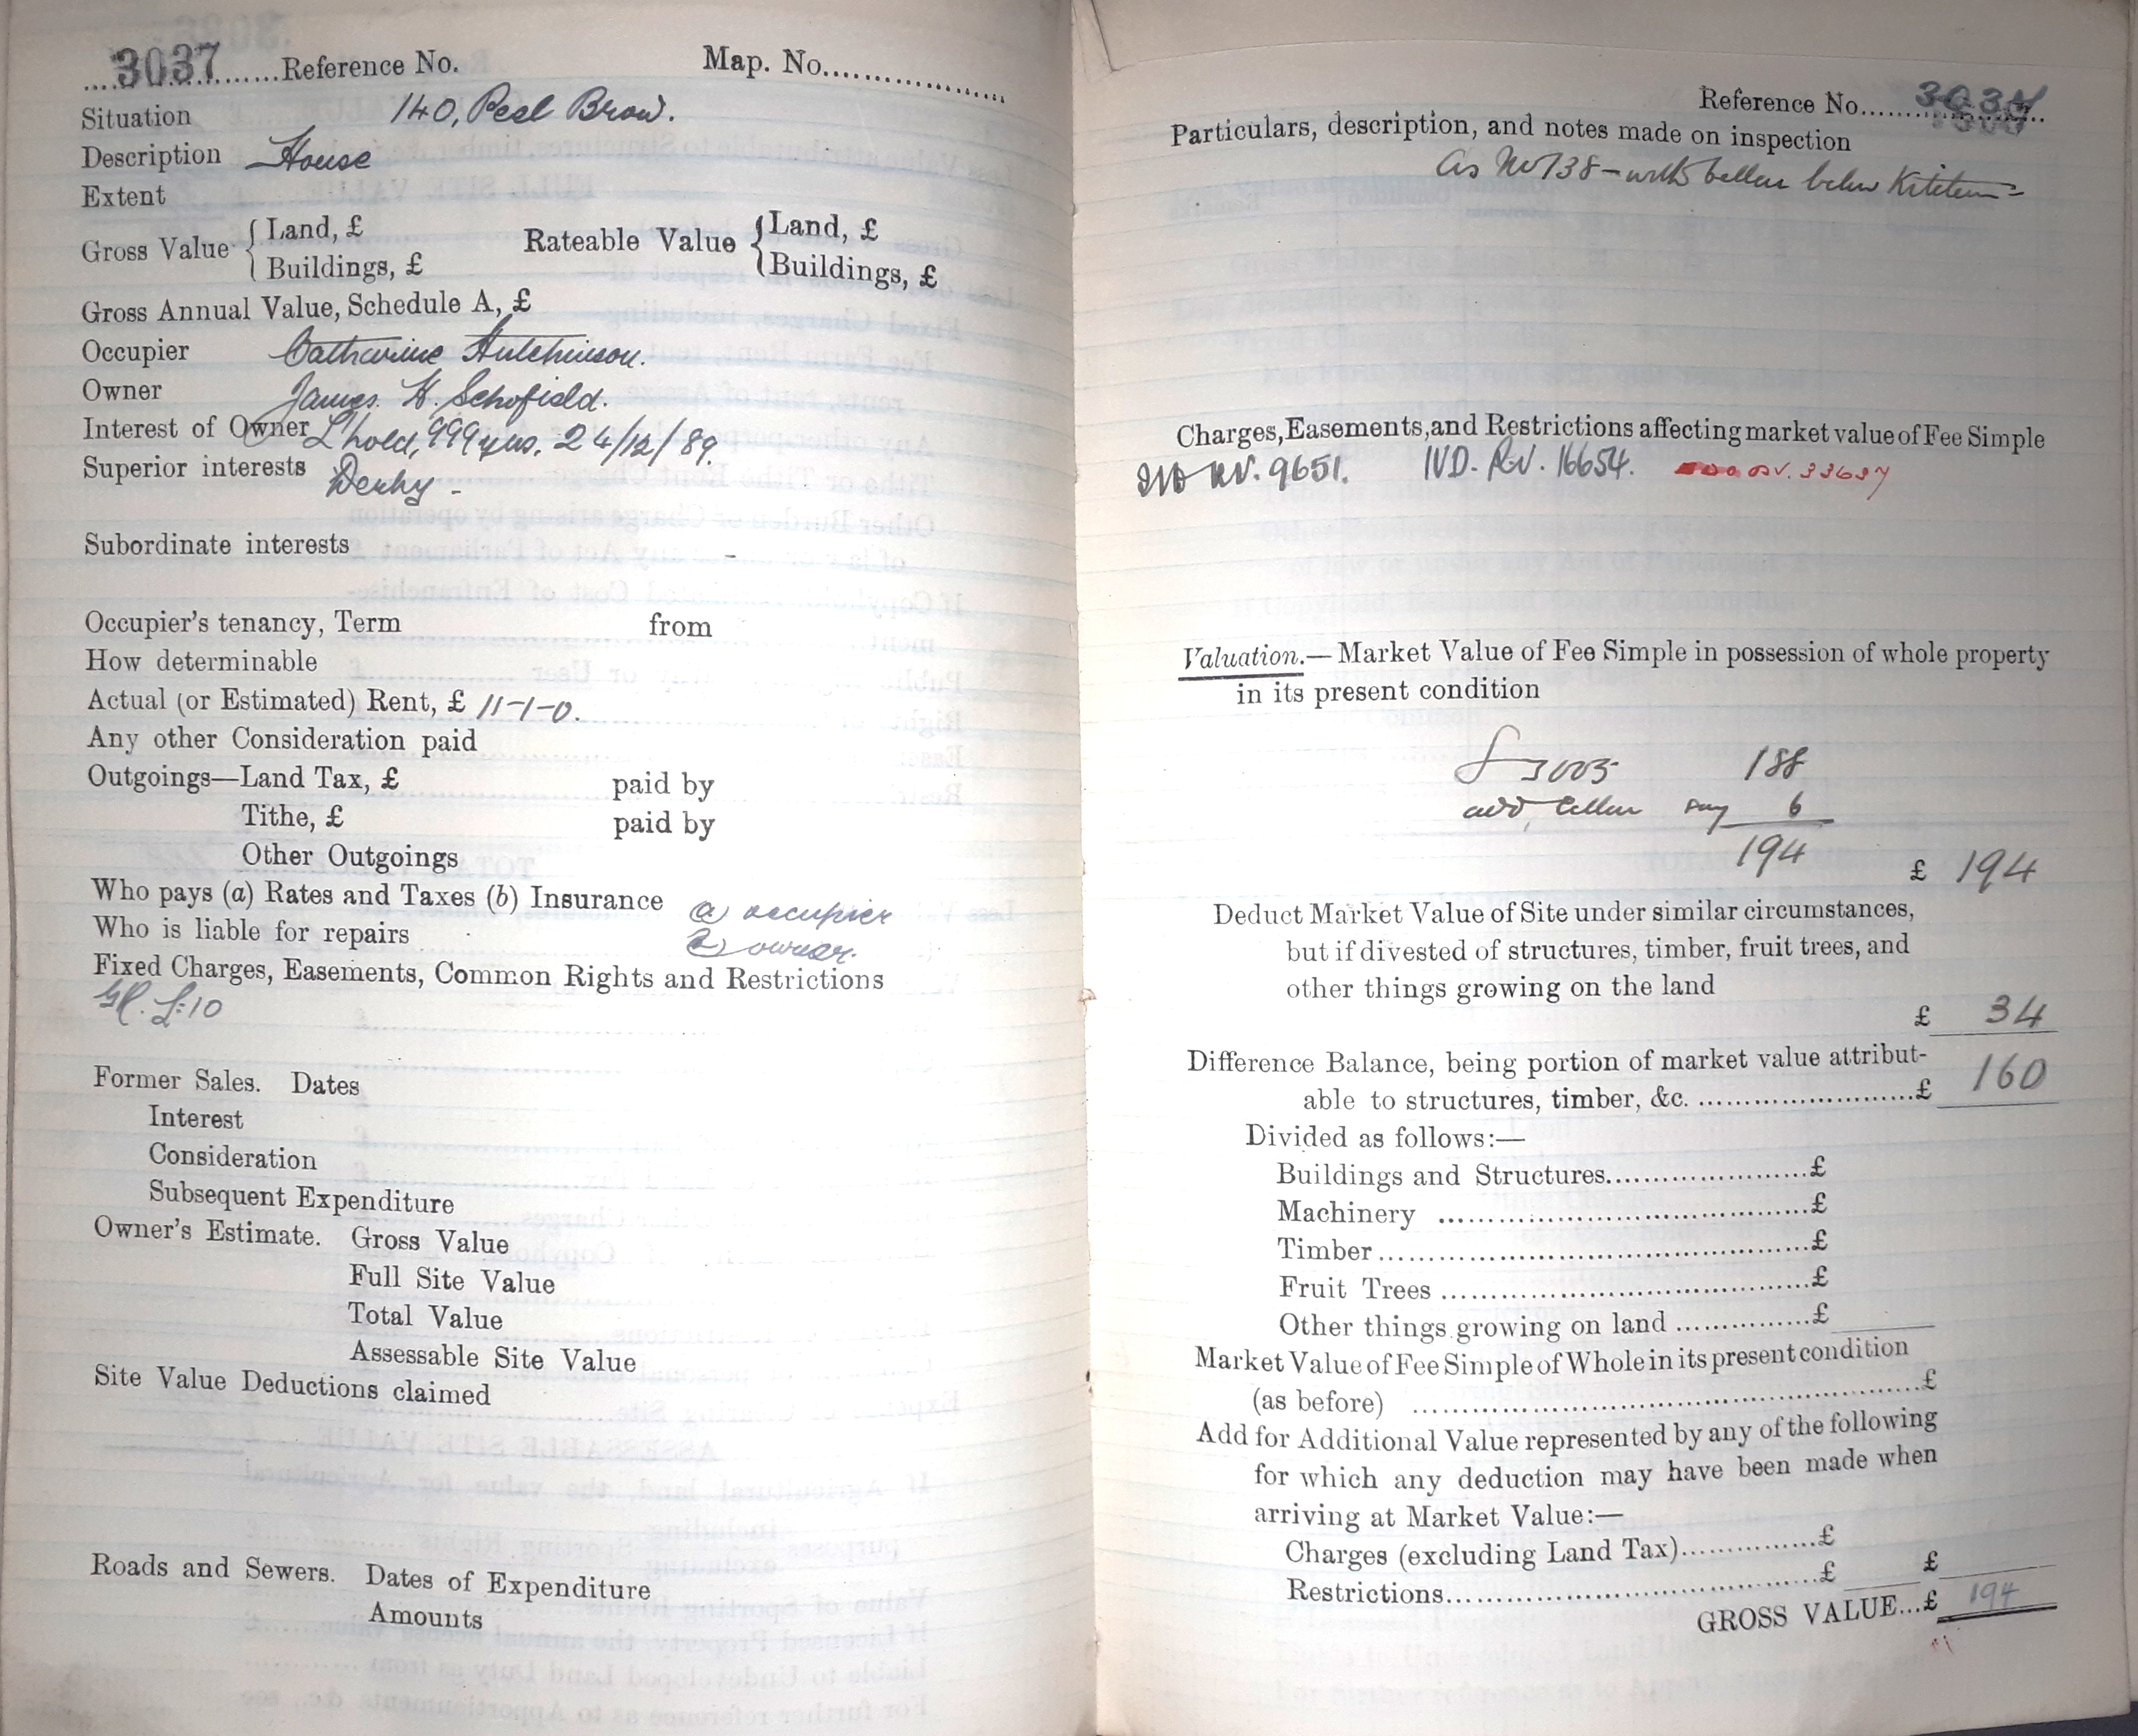 3037 Reference No. Map. No.
Situation 140, Peel Brow.
Description House
Extent
Gross Value { Land, £ Rateable Value { Land, £
Buildings, £ Buildings, £
Gross Annual Value, Schedule A, £
Occupier Catharine Hutchinson.
Owner James H. Schofield.
Interest of Owner L'hold, 999 yrs. 24/12/89.
Superior interests Derby -
Subordinate interests
Occupier's tenancy, Term from
How determinable
Actual (or Estimated) Rent, £ 11-1-0.
Any other Consideration paid
Outgoings—Land Tax, £ paid by
Tithe, £ paid by
Other Outgoings
Who pays (a) Rates and Taxes (b) Insurance a) occupier
Who is liable for repairs owner.
Fixed Charges, Easements, Common Rights and Restrictions
10
Former Sales. Dates
Interest
Consideration
Subsequent Expenditure
Owner's Estimate. Gross Value
Full Site Value
Total Value
Assessable Site Value
Site Value Deductions claimed
Roads and Sewers. Dates of Expenditure
Amounts
Reference No.
Particulars, description, and notes made on inspection
As No 138 - with cellar below Kitchen =
Charges, Easements, and Restrictions affecting market value of Fee Simple
9651. IVD. R.V. 16654.
Valuation.— Market Value of Fee Simple in possession of whole property
in its present condition
188
add cellar say 6
194 £ 194
Deduct Market Value of Site under similar circumstances,
but if divested of structures, timber, fruit trees, and
other things growing on the land
£ 34
Difference Balance, being portion of market value attribut-
able to structures, timber, &c. £ 160
Divided as follows:—
Buildings and Structures £
Machinery £
Timber £
Fruit Trees £
Other things growing on land £
Market Value of Fee Simple of Whole in its present condition
(as before) £
Add for Additional Value represented by any of the following
for which any deduction may have been made when
arriving at Market Value:—
Charges (excluding Land Tax) £
Restrictions £ £
GROSS VALUE...£ 194